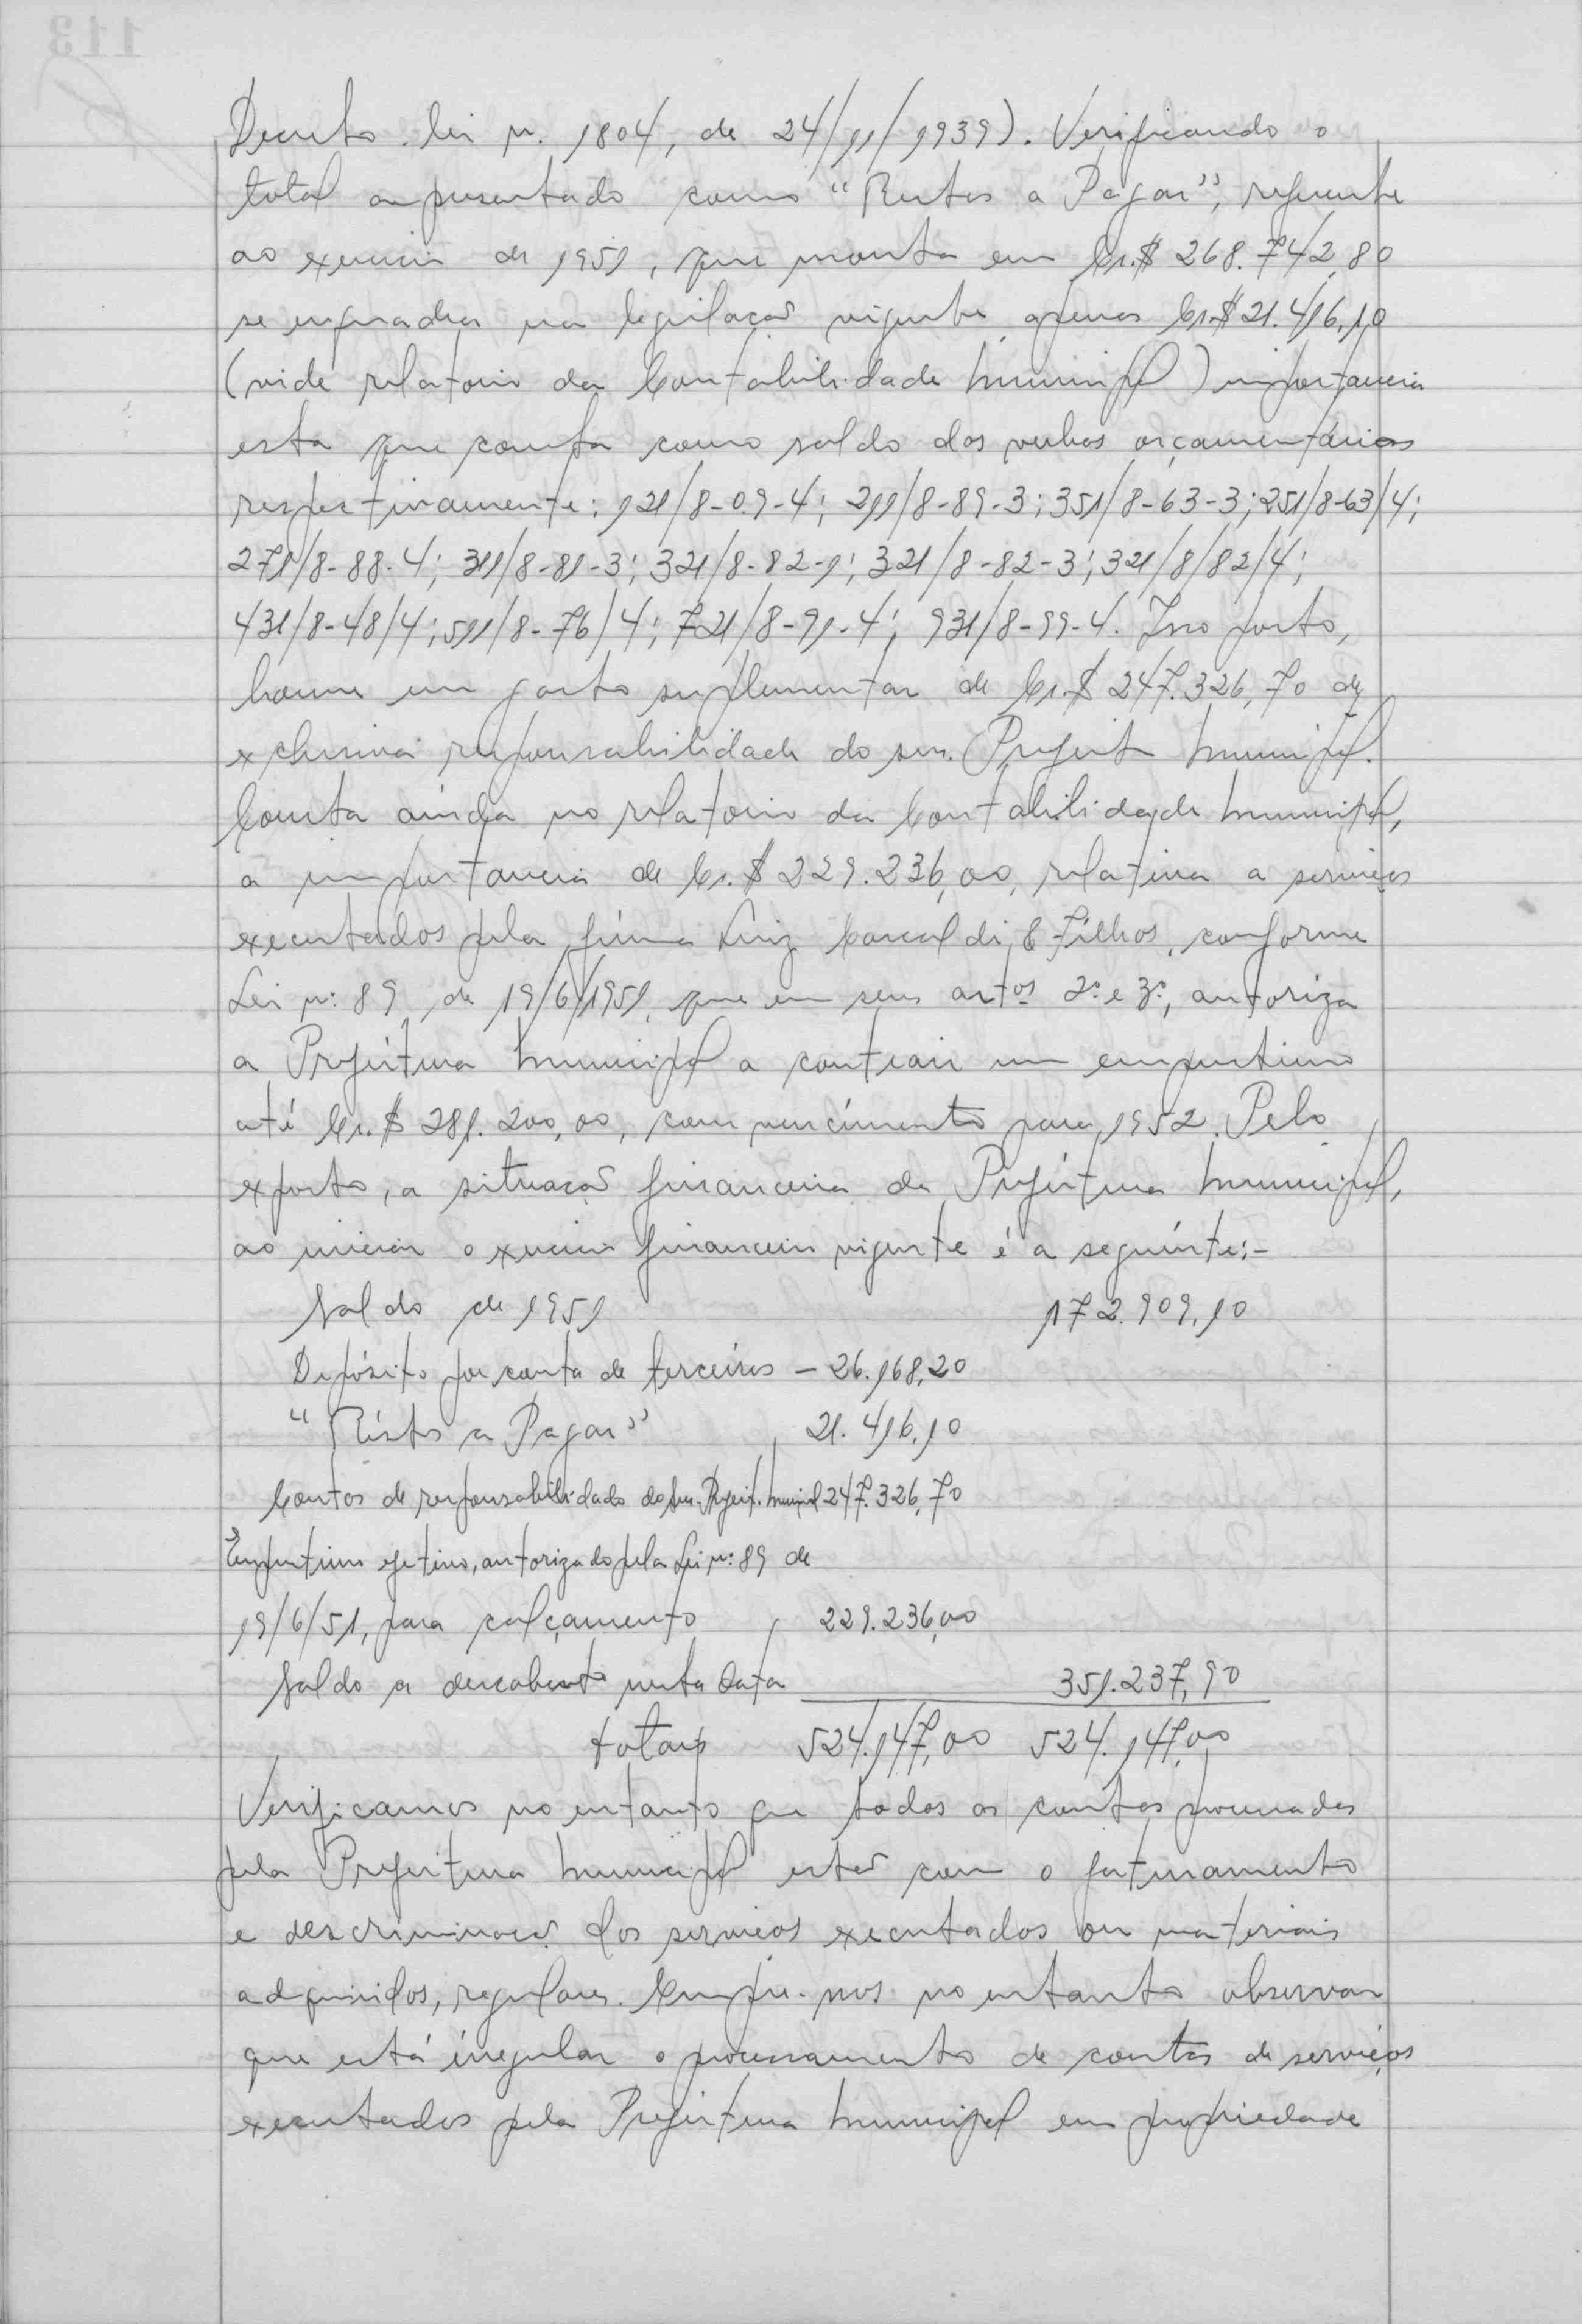 Decreto lei n. 1804, de 24/11/1939). Verificando o
total apresentado como "Restos a Pagar", referente
ao exercicio de 1951, que monta em Cr.$ 268.742,80
se enquadra na legislação vigente apenas Cr.$ 21.416,10
(vide relatorio da Contabilidade Municipal) importancia
esta que consta como saldo das verbas orçamentárias
respectivamente: 121/8-09-4; 211/8-89-3; 351/8-63-3; 251/8-63/4;
271/8-88-4; 311/8-81-3; 321/8-82-1; 321/8-82-3; 321/8/82/4;
431/8-48/4; 511/8-76/4; 721/8-91-4; 931/8-99-4. Isso posto,
houve um gasto suplementar de Cr.$ 247.326,70 de
exclusiva responsabilidade do snr. Prefeito Municipal.
Consta ainda no relatorio da Contabilidade Municipal,
a importancia de Cr.$ 229.236,00, relativa a serviços
executados pela firma Luiz & Filhos, conforme
Lei n: 89 de 19/6/1951, que em seus artos 2º e 3º, autoriza
a Prefeitura Municipal a contrair um emprestimo
até Cr.$ 281.200,00, com vencimento para 1952. Pelo
exposto, a situação financeira da Prefeitura Municipal,
ao iniciar o exercicio financeiro vigente é a seguinte:-
Saldo de 1951 172.909,10
Depósito por conta de terceiros - 26.168,20
"Réstos a Pagar" 21.416,10
Contas de responsabilidade do snr. Prefeit. Municipal 247.326,70
Emprestimo efetivo, autorizado pela Lei n: 89 de
19/6/51, para calçamento 229.236,00
Saldo a descoberto nesta data 351.237,90
totais 524.147,00 524.147,00
Verificamos no entanto que todas as contas processadas
pela Prefeitura Municipal estão com o faturamento
e descriminação dos serviços executados ou materiais
adquiridos, regulares. Cumpre-nos no entanto observar
que está irregular o processamento de contas de serviços
executados pela Prefeitura Municipal em propriedade